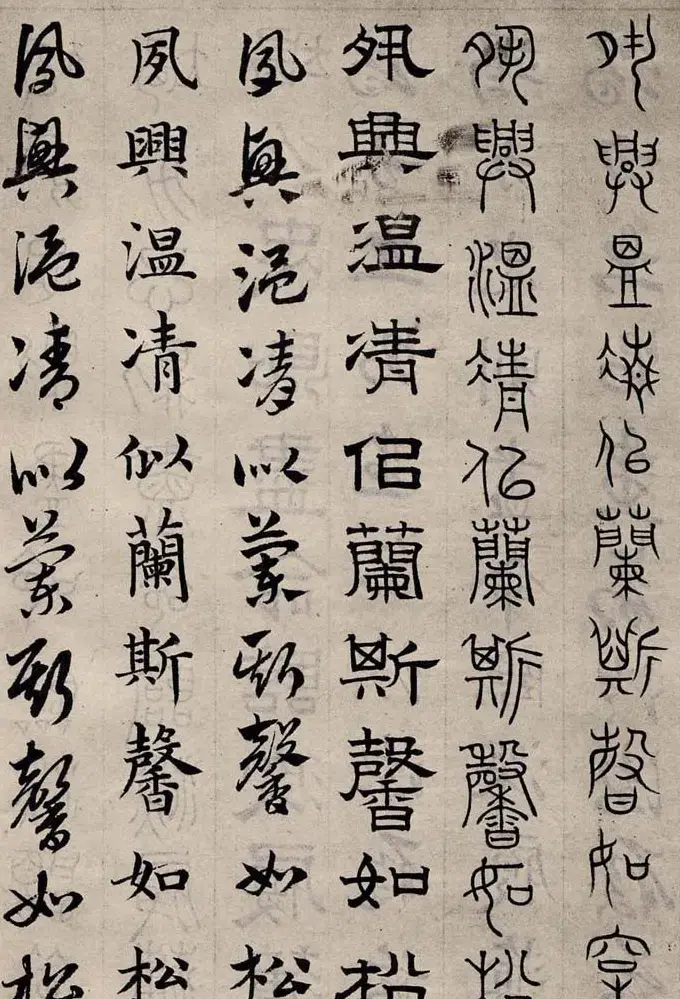 夙興昷凊佀蘭斯馨如
夙興溫凊佀蘭斯馨如松
夙興温凊佀蘭斯馨如松
夙興温凊似蘭斯馨如松
夙興温凊似蘭斯馨如松
夙興温凊似蘭斯馨如松